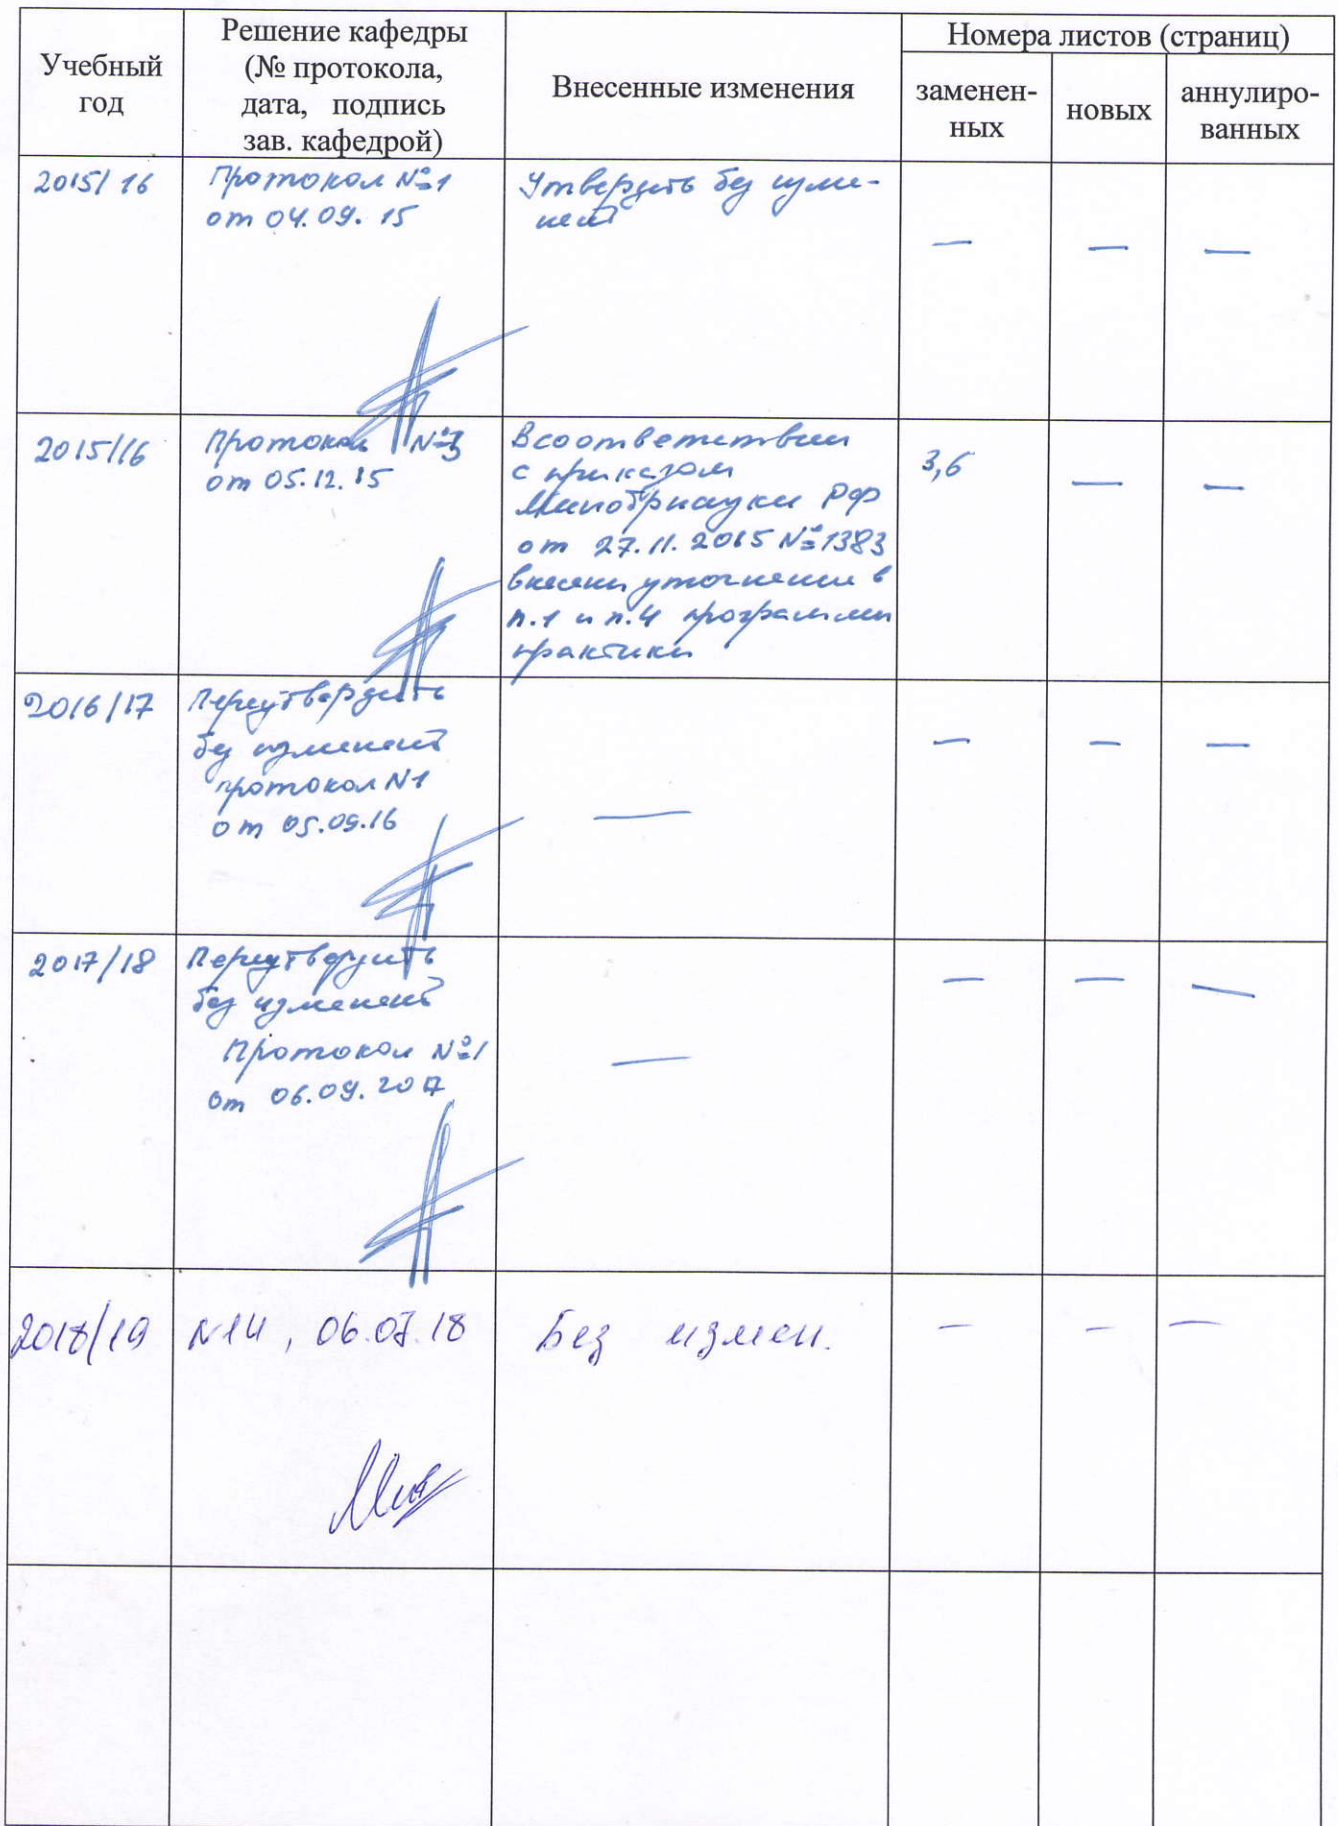 Учебный
год
Решение кафедры
(№ протокола,
дата, подпись
зав. кафедрой)
Внесенные изменения
Номера листов (страниц)
заменен-
ных
новых
аннулиро-
ванных
2015/16
Протокол №1
от 04.09.15
Утвердить без изме-
нений
—
—
—
2015/16
Протокол №3
от 05.12.15
В соответствии
с приказом
Минобрнауки РФ
от 27.11.2015 №1383
внесены уточнения в
п.1 и п.4 программы
практики
3,6
—
—
2016/17
Переутвердить
без изменений
протокол №1
от 05.09.16
—
—
—
—
2017/18
Переутвердить
без изменений
Протокол №1
от 06.09.2017
—
—
—
—
2018/19
№14, 06.07.18
Без измен.
—
—
—